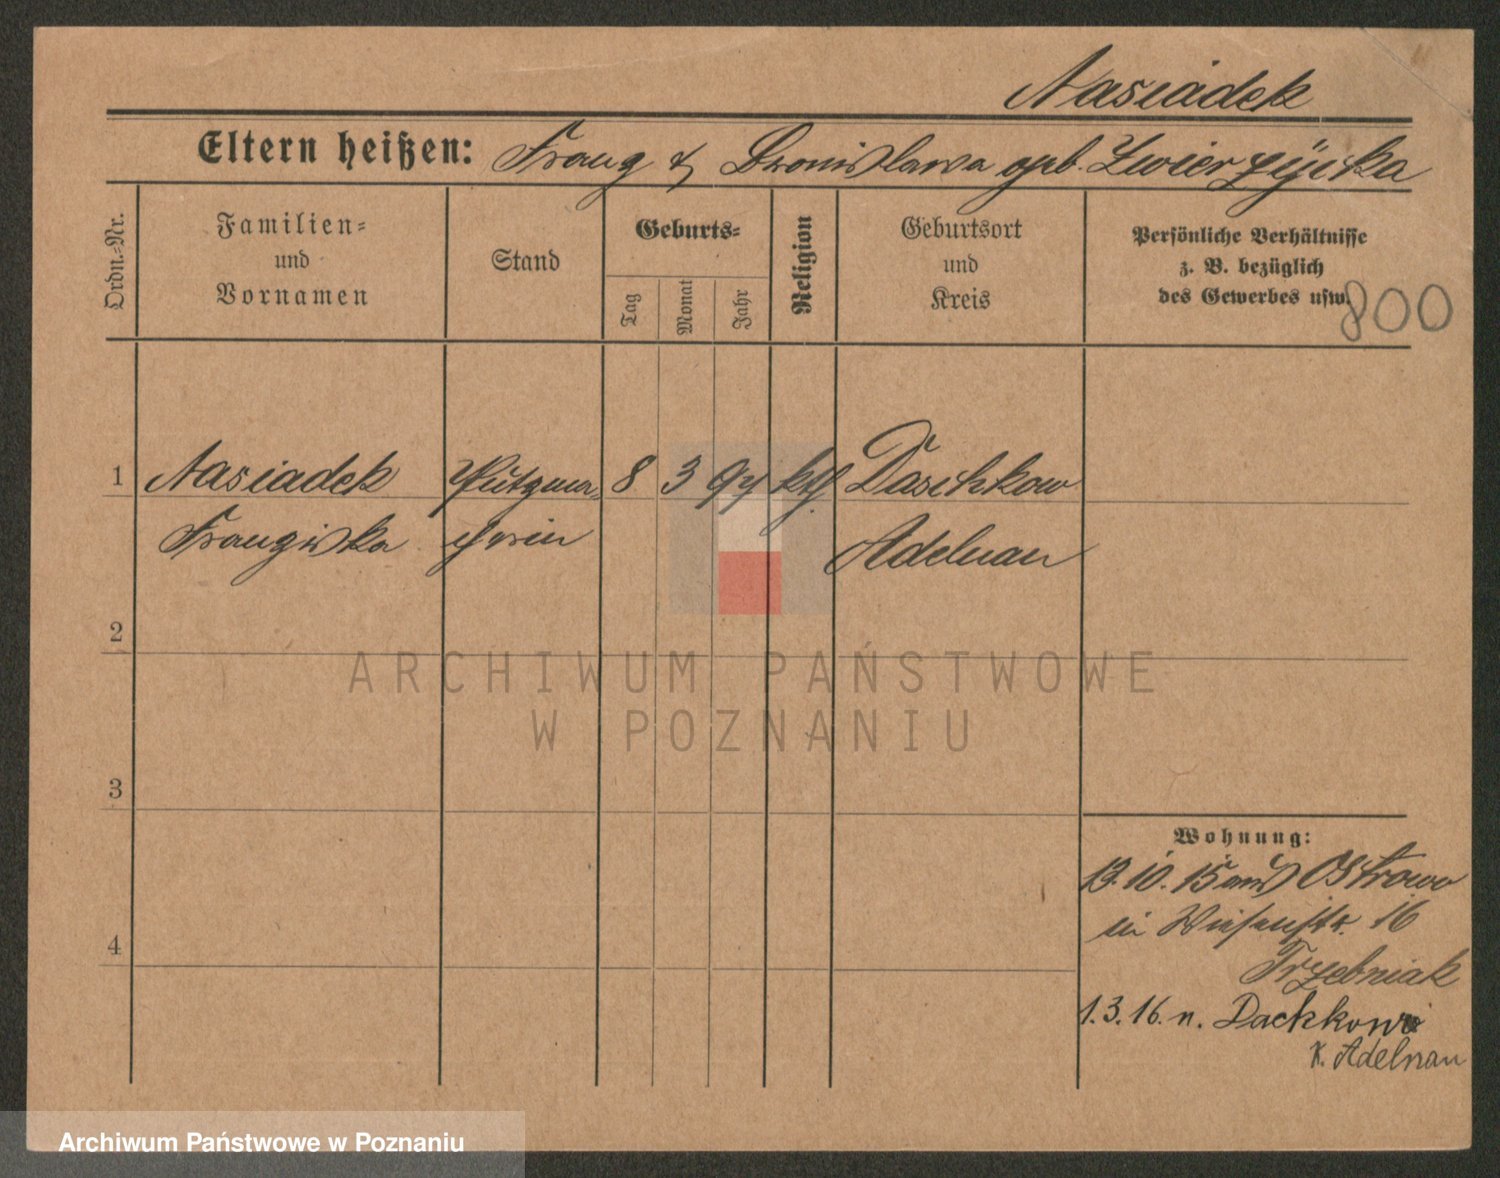 Nasiadek
Eltern heißen: Franz & Bronislawa geb. Zwierzycka
Ordn.-Nr.
Familien-
und
Vornamen
Stand
Geburts-
Tag
Monat
Jahr
Religion
Geburtsort
und
Kreis
Persönliche Verhältnisse
z. B. bezüglich
des Gewerbes usw.
800
1 Nasiadek Putzma- 8 3 97 kth Daschkow
Franziska cherin Adelnau
2
3
4
Wohnung:
13.10.15 aus Ostrowo
in Wiesenstr. 16
Trzebniak
1.3.16. n. Dackkow
K. Adelnau
ARCHIWUM PAŃSTWOWE
W POZNANIU
Archiwum Państwowe w Poznaniu